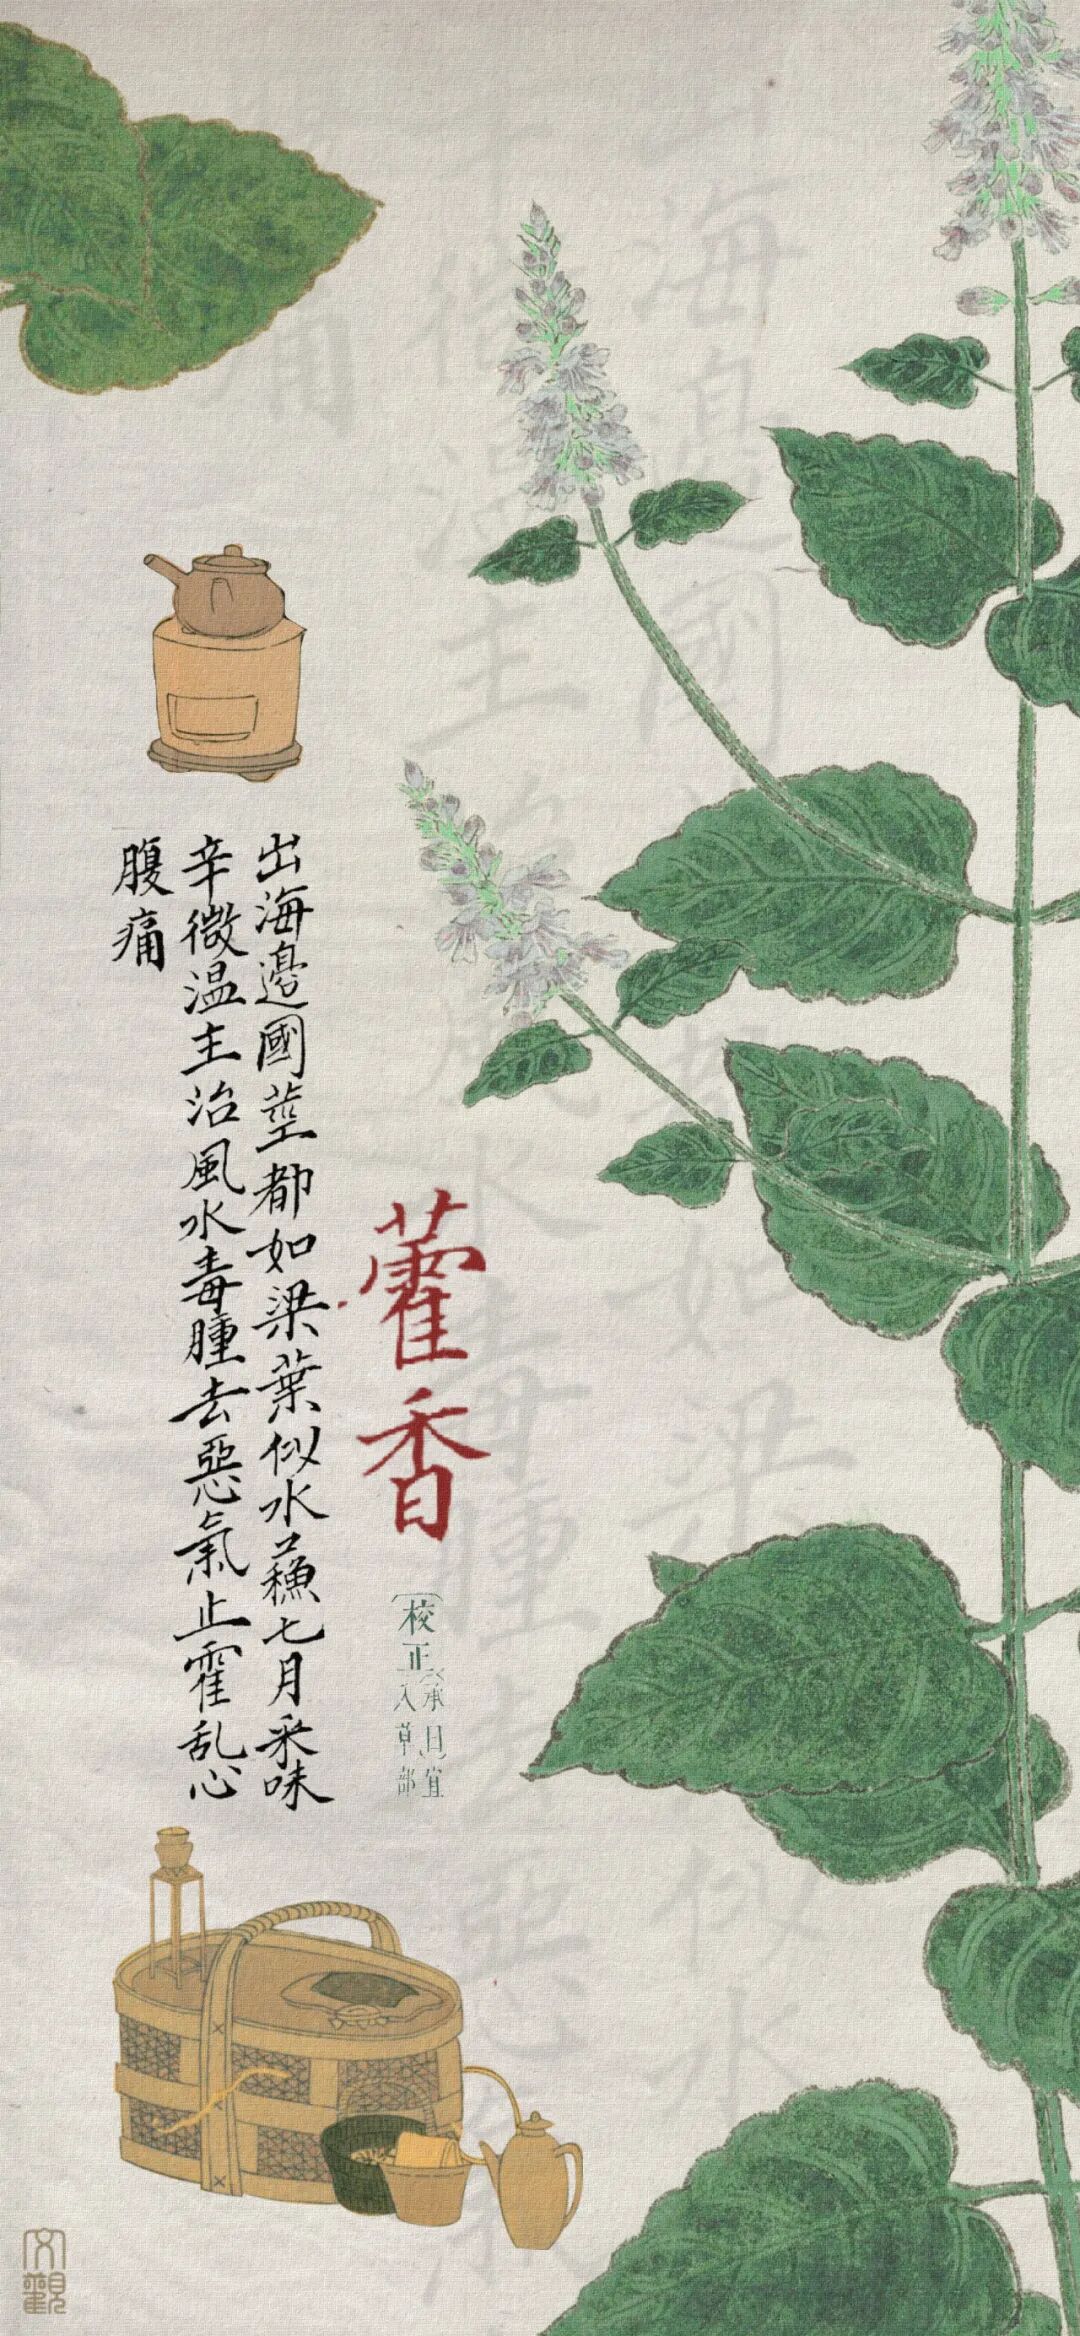 藿香
校正
承曰宜
入草部
出海邊國莖都如梁葉似水蘓七月采味
辛微温主治風水毒腫去惡氣止霍乱心
腹痛
文觀